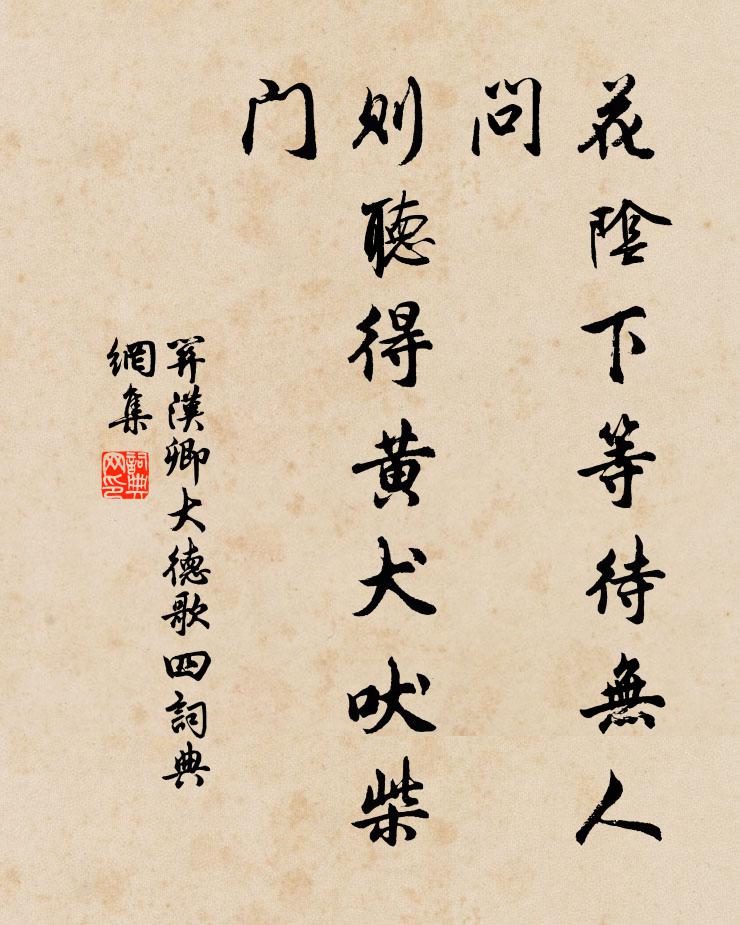 花陰下等待無人
問
則聽得黄犬吠柴
门
關漢卿大德歌四詞典
網集
詞典
网印